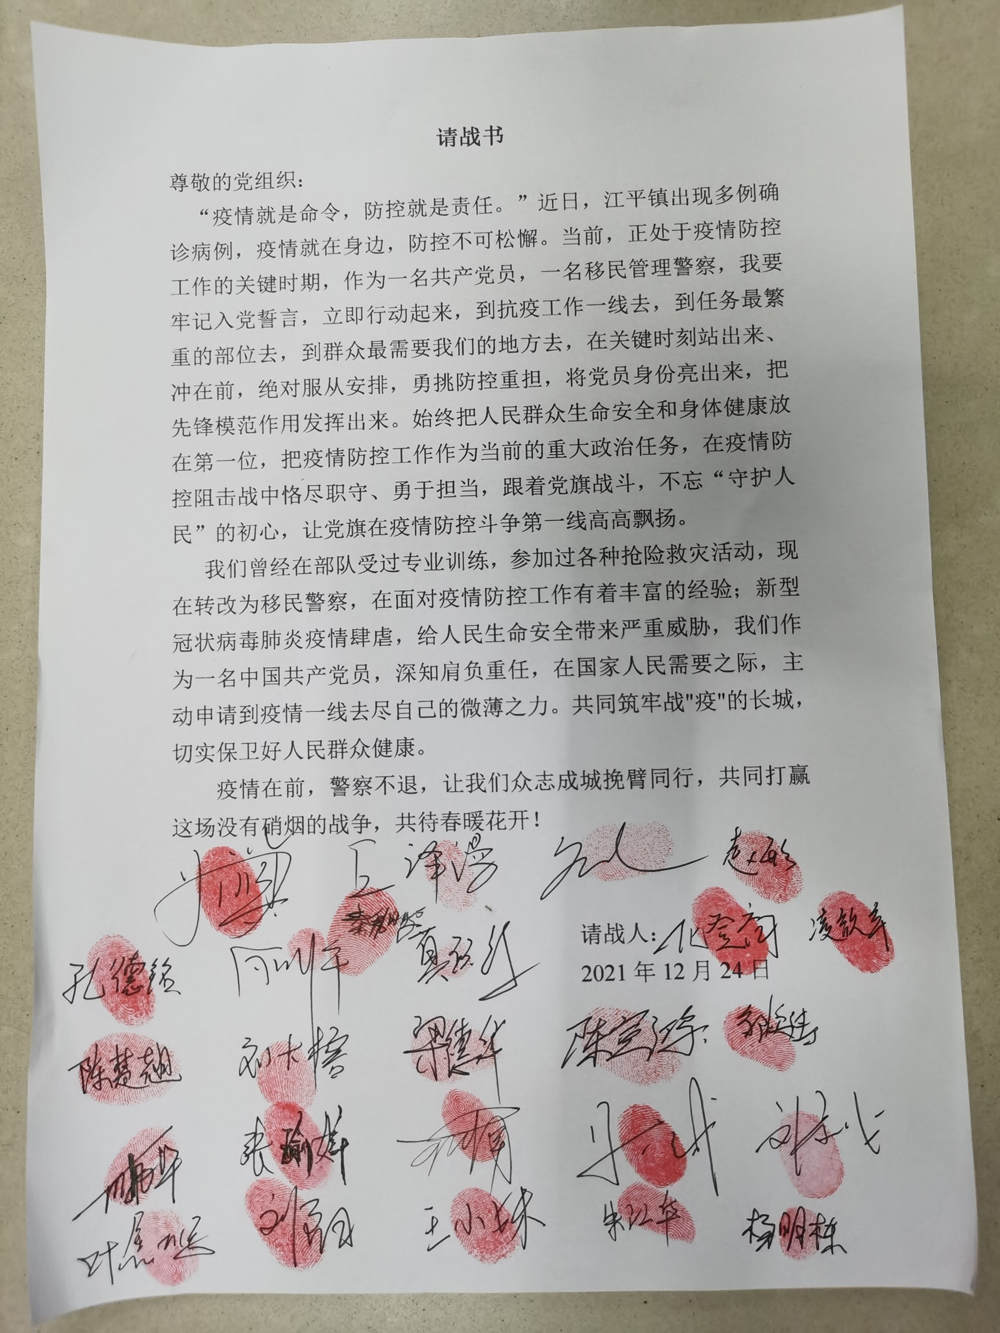 请战书
尊敬的党组织：
“疫情就是命令，防控就是责任。”近日，江平镇出现多例确
诊病例，疫情就在身边，防控不可松懈。当前，正处于疫情防控
工作的关键时期，作为一名共产党员，一名移民管理警察，我要
牢记入党誓言，立即行动起来，到抗疫工作一线去，到任务最繁
重的部位去，到群众最需要我们的地方去，在关键时刻站出来、
冲在前，绝对服从安排，勇挑防控重担，将党员身份亮出来，把
先锋模范作用发挥出来。始终把人民群众生命安全和身体健康放
在第一位，把疫情防控工作作为当前的重大政治任务，在疫情防
控阻击战中恪尽职守、勇于担当，跟着党旗战斗，不忘“守护人
民”的初心，让党旗在疫情防控斗争第一线高高飘扬。
我们曾经在部队受过专业训练，参加过各种抢险救灾活动，现
在转改为移民警察，在面对疫情防控工作有着丰富的经验；新型
冠状病毒肺炎疫情肆虐，给人民生命安全带来严重威胁，我们作
为一名中国共产党员，深知肩负重任，在国家人民需要之际，主
动申请到疫情一线去尽自己的微薄之力。共同筑牢战"疫"的长城，
切实保卫好人民群众健康。
疫情在前，警察不退，让我们众志成城挽臂同行，共同打赢
这场没有硝烟的战争，共待春暖花开！
请战人：
孔德铭
2021 年 12 月 24 日
陈楚翘 刘大榕 梁德华
张瑜洋
王小妹 朱江华 杨明栋